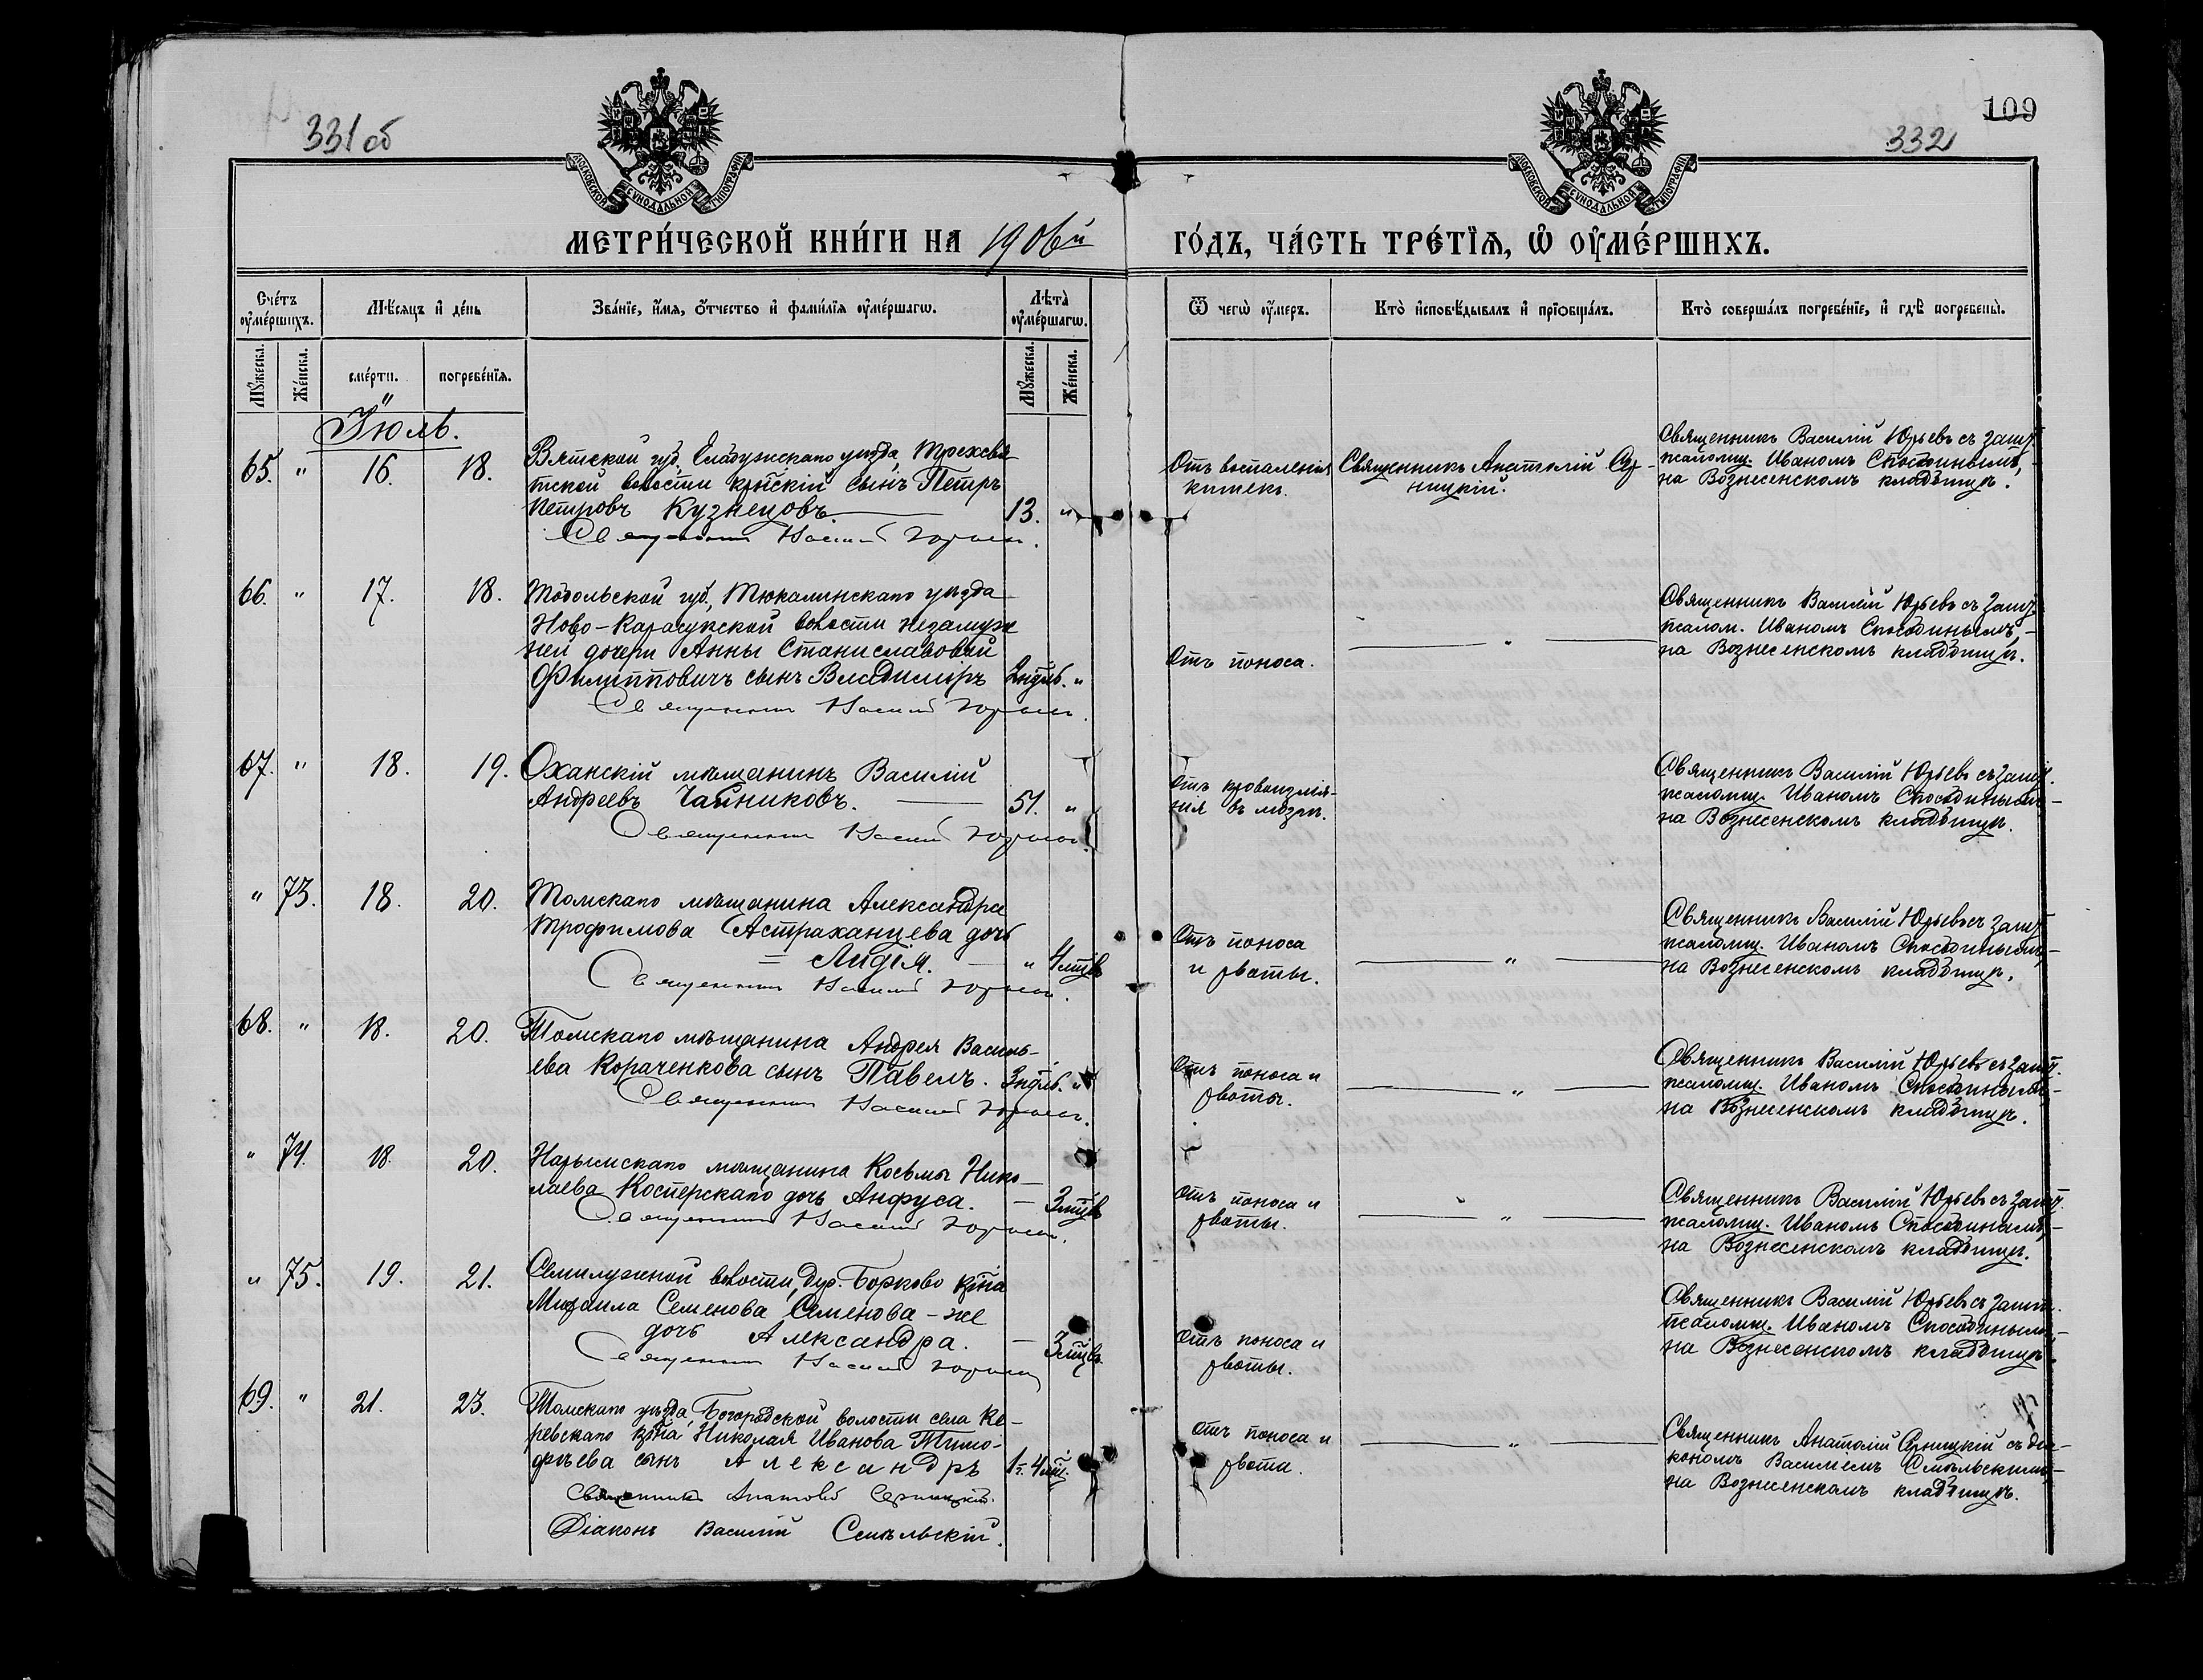 331 об
109
332
МОСКОВСКОЙ СѴНОДАЛЬНОЙ ТИПОГРАФІИ
МОСКОВСКОЙ СѴНОДАЛЬНОЙ ТИПОГРАФІИ
МЕТРИ́ЧЕСКОЙ КНИ́ГИ НА 1906й ГО́ДЪ, ЧА́СТЬ ТРЕ́ТЇѦ, Ѡ҆ ОУ҆МЕ́РШИХЪ.
Сче́тъ оу҆ме́ршихъ.
Мѣ́сѧцъ и҆ де́нь
Зва́нїе, и҆́мѧ, ѻ҆́тчество и҆ фами́лїѧ оу҆ме́ршагѡ.
Лѣта̀ оу҆ме́ршагѡ.
Ѿ чегѡ̀ оу҆́меръ.
Кто̀ и҆сповѣ́дывалъ и҆ прїѻбща́лъ.
Кто̀ соверша́лъ погребе́нїе, и҆ гдѣ̀ погребены̀.
Мꙋ́жеска.
Же́нска.
сме́рти.
погребе́нїѧ.
Мꙋ́жеска.
Же́нска.
Іюль.
65. " 16. 18.
Вятской губ. Елабужскаго уѣзда Трехсвя-
тской волости кр̃тскій сынъ Петръ
Петровъ Кузнецовъ. 13. "
Священникъ Василій Юрьевъ.
Отъ воспаленія
кишекъ.
Священникъ Анатолій Сер-
ницкій.
Священникъ Василій Юрьевъ съ зашт.
псаломщ. Иваномъ Способинымъ,
на Вознесенскомъ кладбищѣ.
66. " 17. 18.
Тобольской губ., Тюкалинскаго уѣзда
Ново-Карасукской волости незамуж
ней дочери Анны Станиславовой
Филипповичъ сынъ Владиміръ 2 ндѣль. "
Священникъ Василій Юрьевъ.
Отъ поноса.
"
Священникъ Василій Юрьевъ съ зашт.
псалом. Иваномъ Способинымъ,
на Вознесенскомъ кладбищѣ.
67. " 18. 19.
Оханскій мѣщанинъ Василій
Андреевъ Чайниковъ. 51. "
Священникъ Василій Юрьевъ.
Отъ кровоизлія-
нія въ мозгъ.
Священникъ Василій Юрьевъ съ зашт.
псаломщ. Иваномъ Способинымъ,
на Вознесенскомъ кладбищѣ.
" 73. 18. 20.
Томскаго мѣщанина Александра
Трофимова Астраханцева дочь
Лидія. " 4 мѣцъ
Священникъ Василій Юрьевъ.
Отъ поноса
и рвоты.
"
Священникъ Василій Юрьевъ съ зашт.
псаломщ. Иваномъ Способинымъ,
на Вознесенскомъ кладбищѣ.
68. " 18. 20.
Томскаго мѣщанина Андрея Василь-
ева Кораченкова сынъ Павелъ. 3 ндѣль. "
Священникъ Василій Юрьевъ.
Отъ поноса и
рвоты.
"
Священникъ Василій Юрьевъ съ зашт.
псаломщ. Иваномъ Способинымъ,
на Вознесенскомъ кладбищѣ.
" 74. 18. 20.
Нарымскаго мѣщанина Косьмы Нико-
лаева Костерскаго дочь Анфуса. 3 мѣцъ
Священникъ Василій Юрьевъ.
Отъ поноса и
рвоты.
"
Священникъ Василій Юрьевъ съ зашт.
псаломщ. Иваномъ Способинымъ,
на Вознесенскомъ кладбищѣ.
" 75. 19. 21.
Семилужной волости, дер. Борково кр̃на
Михаила Семенова Семенова-же
дочь Александра. 3 мѣцъ
Священникъ Василій Юрьевъ
Отъ поноса и
рвоты.
Священникъ Василій Юрьевъ съ зашт.
псаломщ. Иваномъ Способинымъ,
на Вознесенскомъ кладбищѣ
69. " 21. 23.
Томскаго уѣзда, Богородской волости села Ке-
ревскаго кр̃на Николая Иванова Тимо-
фѣева сынъ Александръ 1 г. 4 мѣц.
Священникъ Анатолій Серницкій.
Діаконъ Василій Смѣльскій.
Отъ поноса и
рвоты.
"
Священникъ Анатолій Серницкій съ діа-
кономъ Василіемъ Смѣльскимъ
на Вознесенскомъ кладбищѣ.